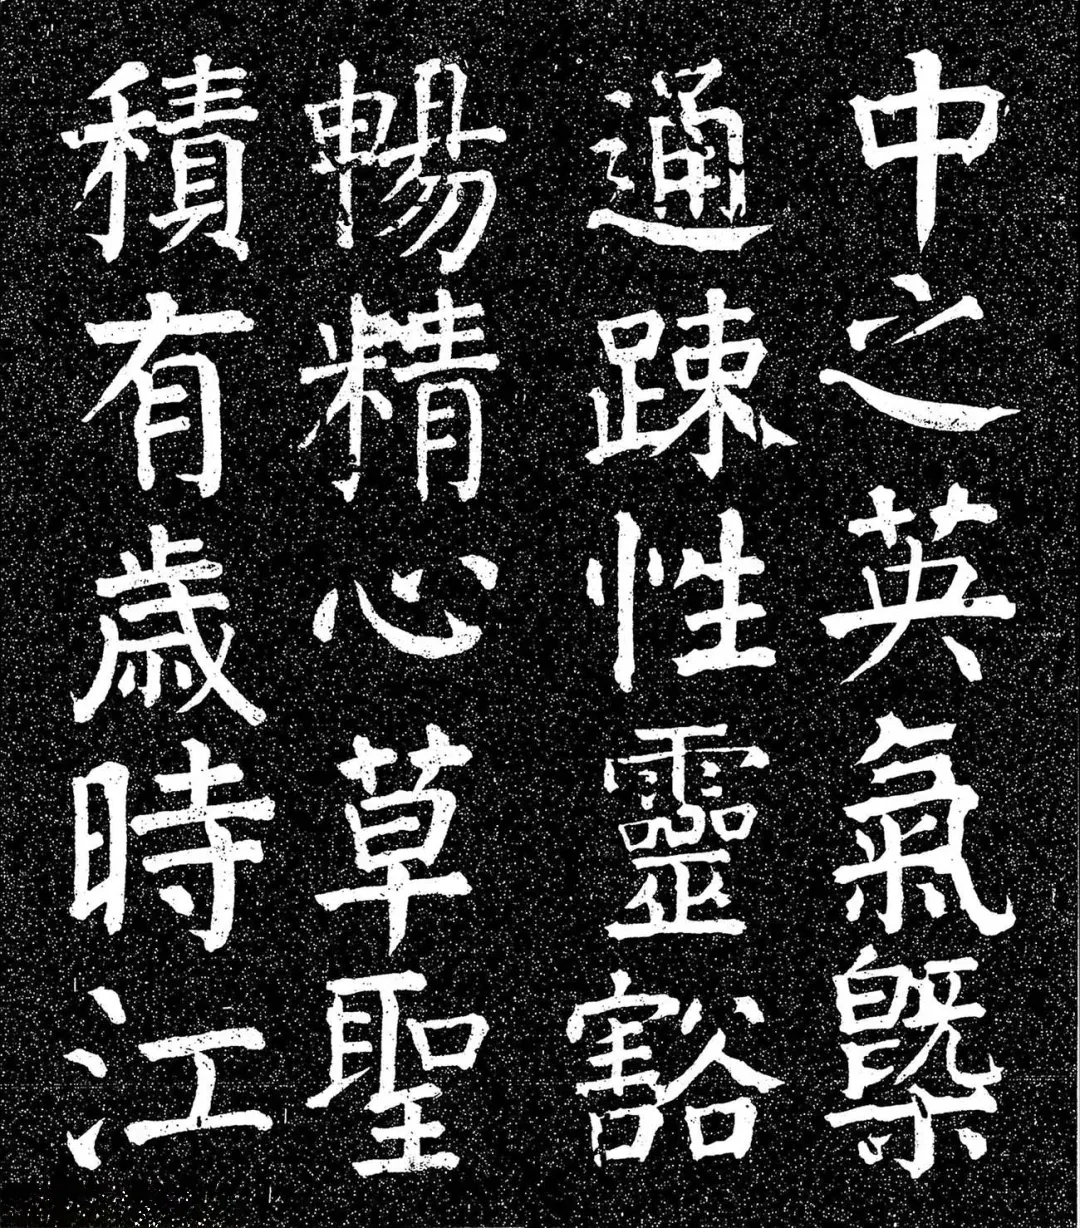 中之英氣槩
通踈性靈豁
暢精心草聖
積有歲時江